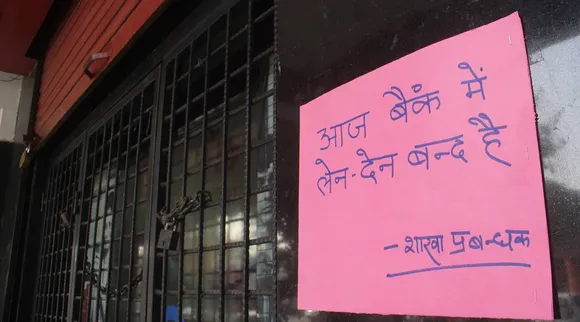 आज बैंक में
लेन-देन बन्द है
-शाखा प्रबन्धक